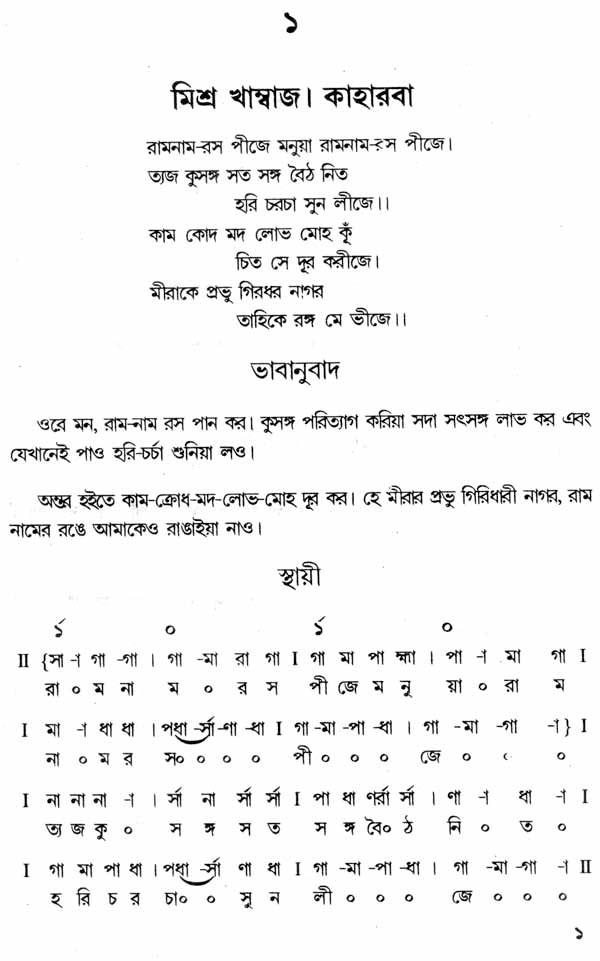 ১
মিশ্র খাম্বাজ। কাহারবা
রামনাম-রস পীজে মনুয়া রামনাম-রস পীজে।
ত্যজ কুসঙ্গ সত সঙ্গ বৈঠ নিত
হরি চরচা সুন লীজে।।
কাম কোদ মদ লোভ মোহ কূঁ
চিত সে দূর করীজে।
মীরাকে প্রভু গিরধর নাগর
তাহিকে রঙ্গ মে ভীজে।।
ভাবানুবাদ
ওরে মন, রাম-নাম রস পান কর। কুসঙ্গ পরিত্যাগ করিয়া সদা সৎসঙ্গ লাভ কর এবং
যেখানেই পাও হরি-চর্চা শুনিয়া লও।
অন্তর হইতে কাম-ক্রোধ-মদ-লোভ-মোহ দূর কর। হে মীরার প্রভু গিরিধারী নাগর, রাম
নামের রঙে আমাকেও রাঙাইয়া নাও।
স্থায়ী
র্১ ০ র্১ ০
II {সা -া গা -গা । গা -মা রা গা I গা মা পা হ্মা । পা -া মা গা I
রা ০ ম না ম ০ র স পী জে ম নু য়া ০ রা ম
I মা -া ধা ধা । পধা -র্সা -ণা -ধা I গা -মা -পা -ধা । গা -মা -গা -া} I
না ০ ম র স০ ০ ০ ০ পী ০ ০ ০ জে ০ ০ ০
I না না না -া । র্সা না র্সা র্সা I পা ধা ণর্রা র্সা । ণা -া ধা -া I
ত্য জ কু ০ স ঙ্গ স ত স ঙ্গ বৈ০ ঠ নি ০ ত ০
I গা মা পা ধা । পধা -র্সা ণা ধা I গা -মা -পা -ধা । গা -মা -গা -া II
হ রি চ র চা০ ০ সু ন লী ০ ০ ০ জে ০ ০ ০
১